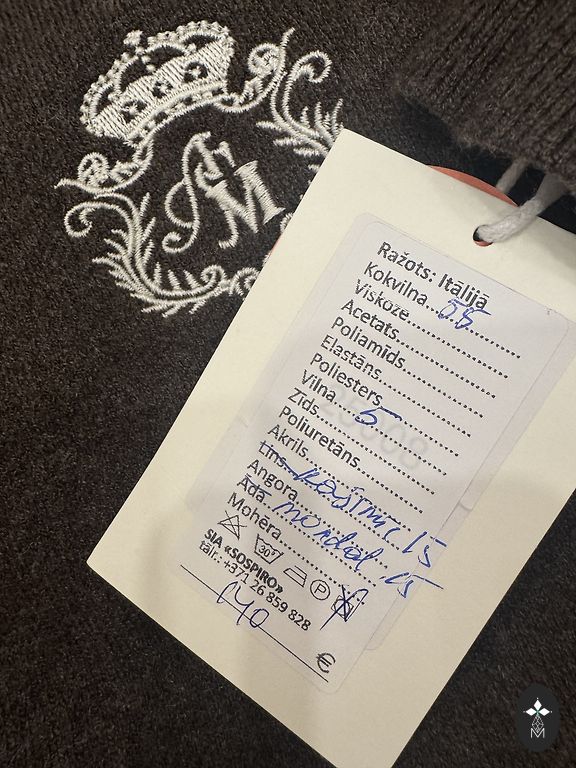 M
Ražots: Itālijā
Kokvilna......55............
Viskoze........................
Acetats........................
Poliamīds.....................
Elastāns.......................
Poliesters.....................
Vilna......5..................
Zīds............................
Poliuretāns...................
Akrils..........................
Lins
Angora
Āda
Mohēra.......................
30°
P
SIA «SOSPIRO»
tālr.: +371 26 859 828
€
M